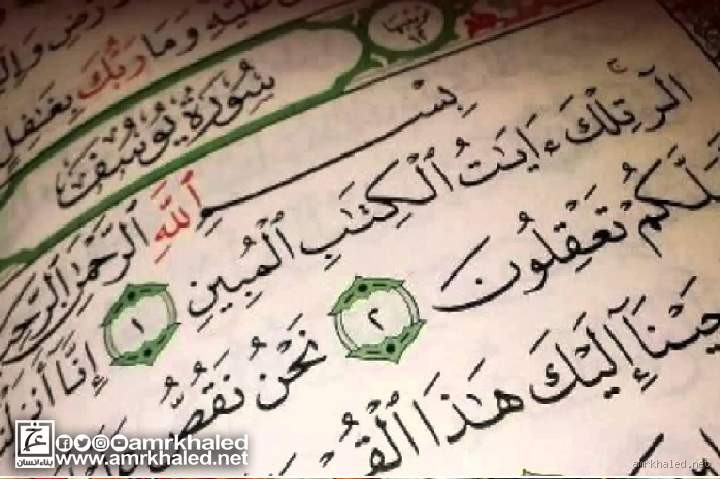 عَلَيْهِ وَمَا رَبُّكَ بِغَٰفِلٍ
سُورَةُ يُوسُفَ
بِسْمِ ٱللَّهِ ٱلرَّحْمَٰنِ ٱلرَّحِيمِ
الٓر تِلْكَ ءَايَٰتُ ٱلْكِتَٰبِ ٱلْمُبِينِ ١ إِنَّآ أَنزَلْنَ
لَّكُمْ تَعْقِلُونَ ٢ نَحْنُ نَقُصُّ
حَيْنَآ إِلَيْكَ هَٰذَا ٱلْقُ
بناء انسان
amrkhaled
www.amrkhaled.net
amrkhaled.net